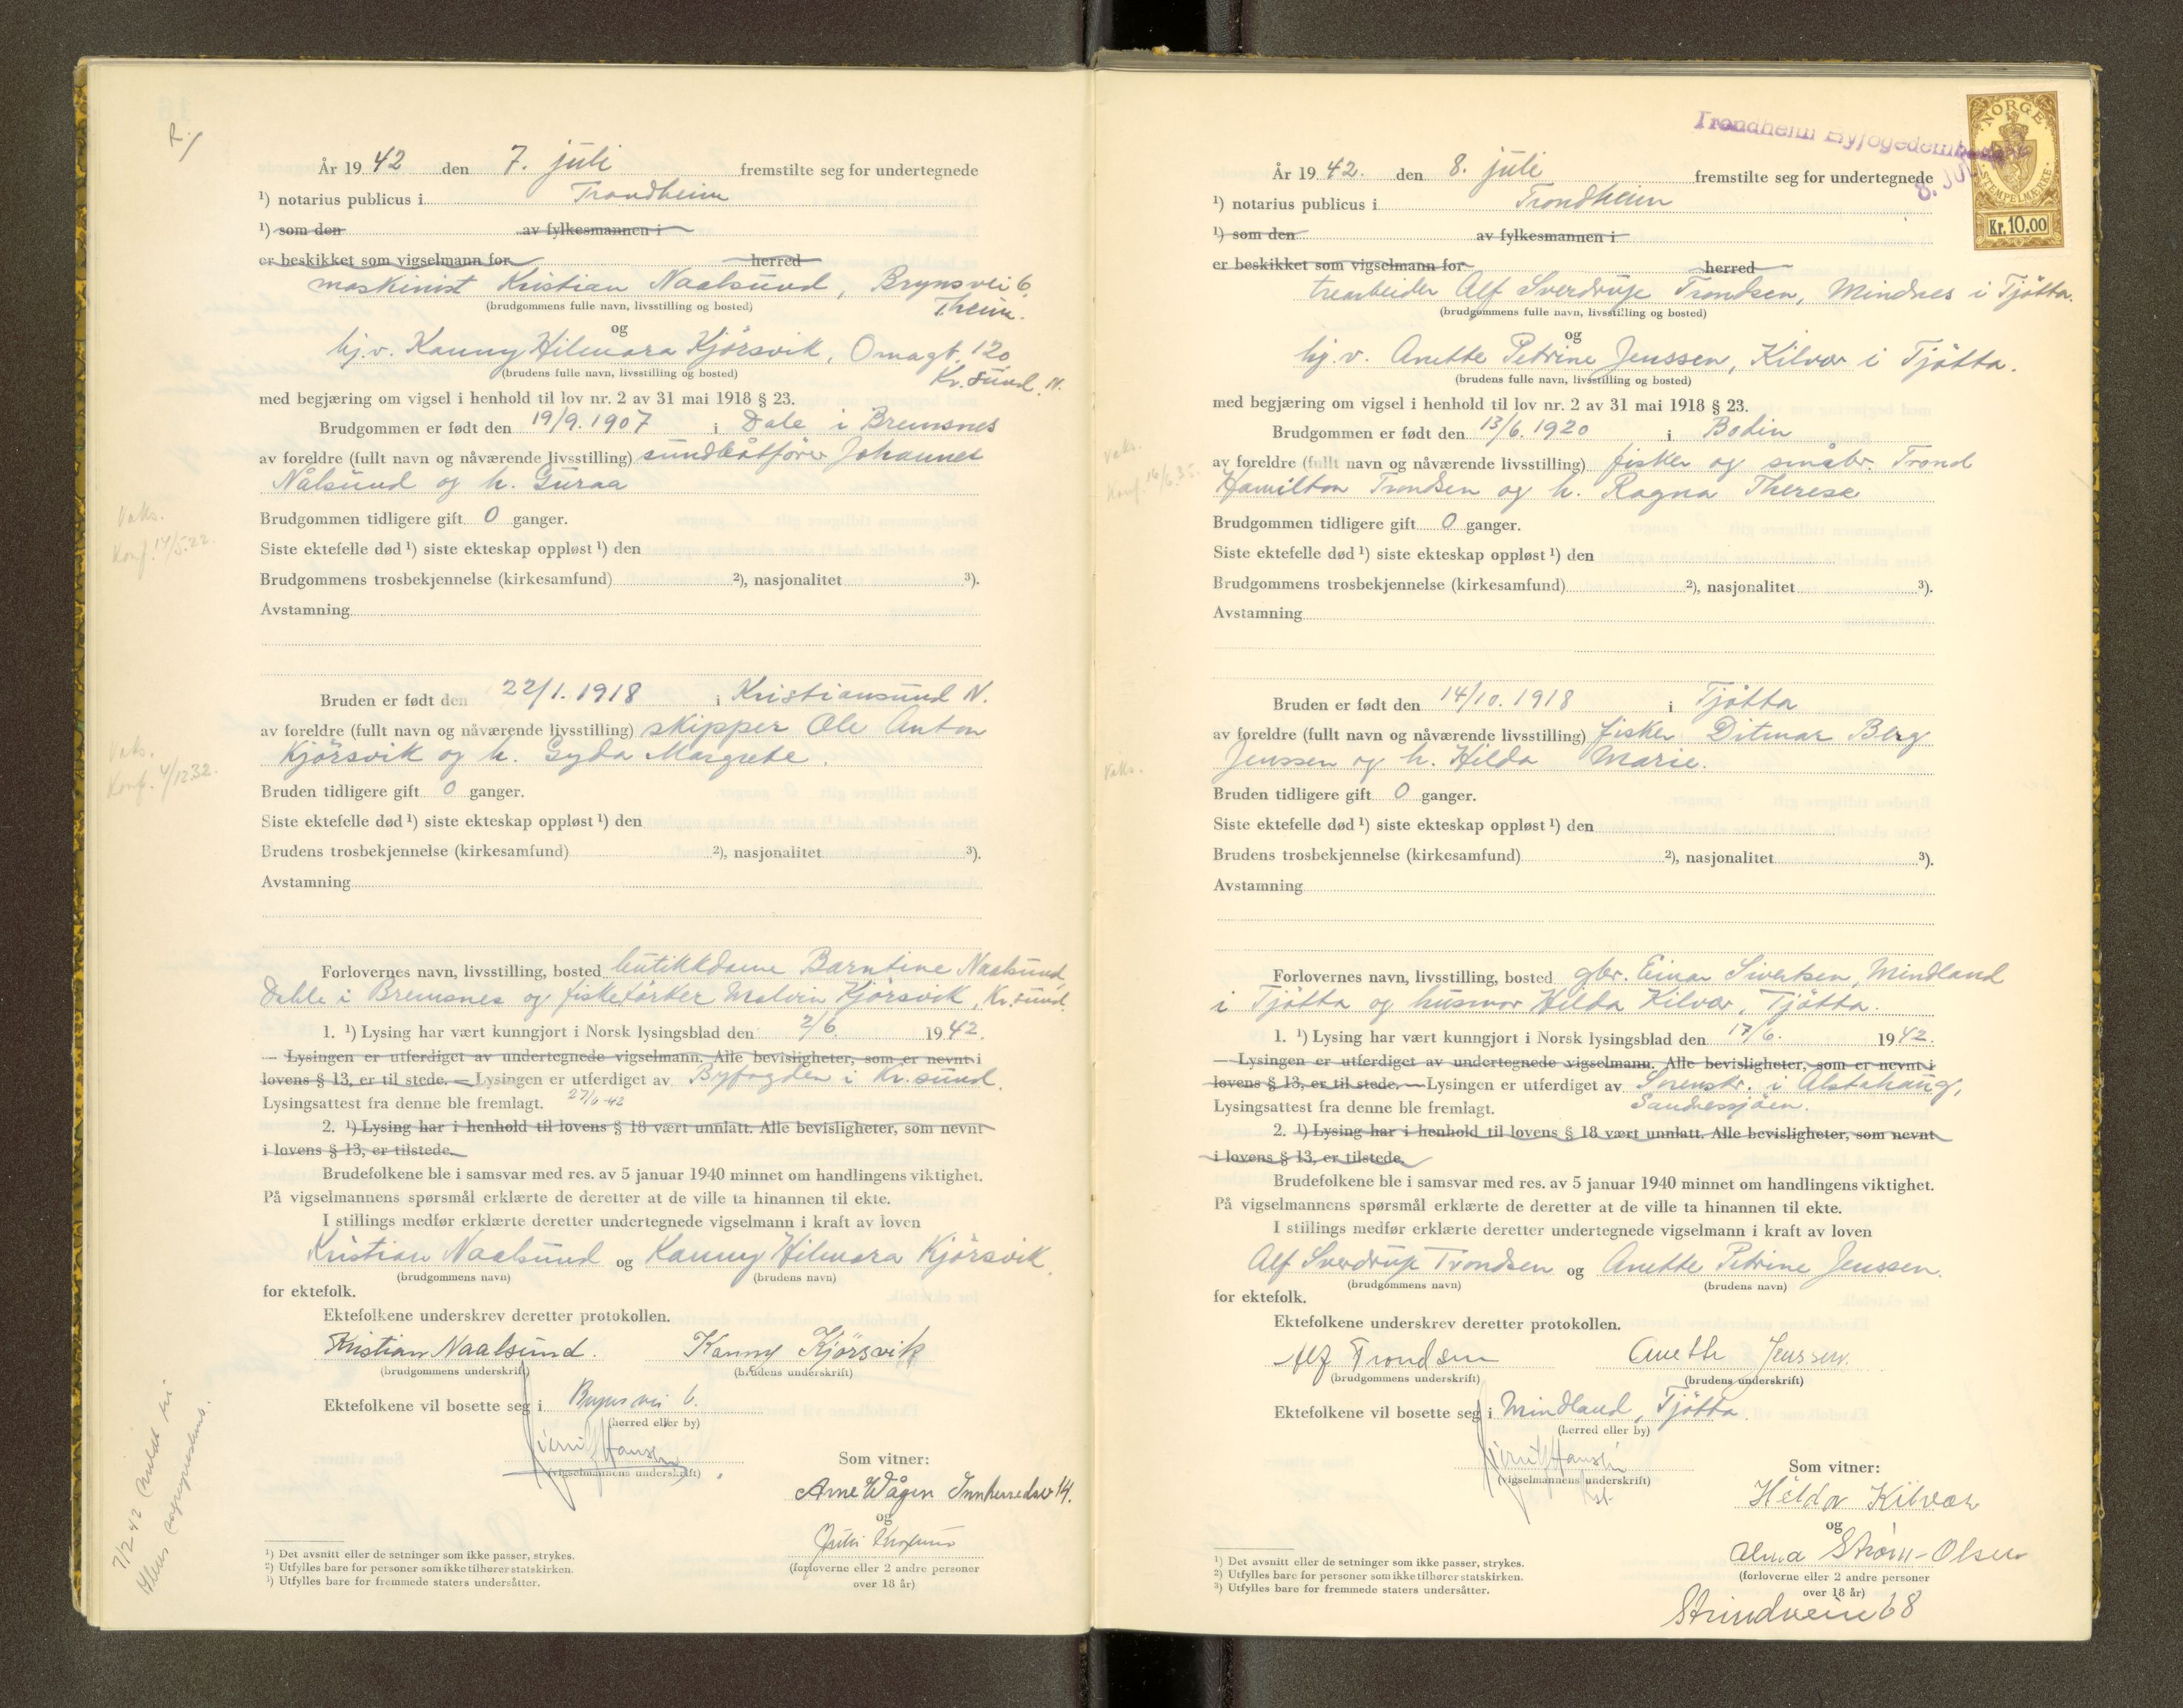 R.
År 1942 den 7. juli fremstilte seg for undertegnede
¹) notarius publicus i Trondheim
¹) som den av fylkesmannen i
er beskikket som vigselmann for herred
maskinist Kristian Naalsund, Brynsvei 6
(brudgommens fulle navn, livsstilling og bosted) T.heim.
og
hj.v. Kanny Hilmara Kjörsvik, Omagt. 120
(brudens fulle navn, livsstilling og bosted) Kr.sund N.
med begjæring om vigsel i henhold til lov nr. 2 av 31 mai 1918 § 23.
Brudgommen er født den 19/9. 1907 i Dale i Bremsnes
av foreldre (fullt navn og nåværende livsstilling) sundbåtförer Johannes
Nålsund og h. Guraa
Brudgommen tidligere gift 0 ganger.
Vaks.
Konf. 14/5.22.
Siste ektefelle død ¹) siste ekteskap oppløst ¹) den
Brudgommens trosbekjennelse (kirkesamfund) ²), nasjonalitet ³).
Avstamning
Bruden er født den 22/1. 1918 i Kristiansund N.
av foreldre (fullt navn og nåværende livsstilling) skipper Ole Anton
Kjörsvik og h. Gyda Margrete.
Vaks.
Konf. 4/12 32.
Bruden tidligere gift 0 ganger.
Siste ektefelle død ¹) siste ekteskap oppløst ¹) den
Brudens trosbekjennelse (kirkesamfund) ²), nasjonalitet ³).
Avstamning
Forlovernes navn, livsstilling, bosted butikkdame Barntine Naalsund,
Dahle i Bremsnes og fisketörker Malvin Kjörsvik, Kr.sund.
1. ¹) Lysing har vært kunngjort i Norsk lysingsblad den 2/6. 1942.
— Lysingen er utferdiget av undertegnede vigselmann. Alle bevisligheter, som er nevnt i
lovens § 13, er til stede. — Lysingen er utferdiget av Byfogden i Kr.sund.
Lysingsattest fra denne ble fremlagt. 27/6-42
2. ¹) Lysing har i henhold til lovens § 18 vært unnlatt. Alle bevisligheter, som nevnt
i lovens § 13, er tilstede.
Brudefolkene ble i samsvar med res. av 5 januar 1940 minnet om handlingens viktighet.
På vigselmannens spørsmål erklærte de deretter at de ville ta hinannen til ekte.
I stillings medfør erklærte deretter undertegnede vigselmann i kraft av loven
Kristian Naalsund og Kanny Hilmara Kjörsvik.
(brudgommens navn) (brudens navn)
for ektefolk.
Ektefolkene underskrev deretter protokollen.
Kristian Naalsund. Kanny Kjörsvik
(brudgommens underskrift) (brudens underskrift)
Ektefolkene vil bosette seg i Brynsvei 6.
(herred eller by)
Hansen
(vigselmannens underskrift)
Som vitner:
Arne Wågen Innherredsv 14.
og
(forloverne eller 2 andre personer
over 18 år)
7/2-42 meldt til
¹) Det avsnitt eller de setninger som ikke passer, strykes.
²) Utfylles bare for personer som ikke tilhører statskirken.
³) Utfylles bare for fremmede staters undersåtter.
Trondheim Byfogedembede
8. JUL
NORGE
STEMPELMERKE
Kr. 10.00
År 1942. den 8. juli fremstilte seg for undertegnede
¹) notarius publicus i Trondheim
¹) som den av fylkesmannen i
er beskikket som vigselmann for herred
trearbeider Alf Sverdrup Trondsen, Mindnes i Tjötta.
(brudgommens fulle navn, livsstilling og bosted)
og
hj.v. Anette Petrine Jenssen, Kilvær i Tjötta.
(brudens fulle navn, livsstilling og bosted)
med begjæring om vigsel i henhold til lov nr. 2 av 31 mai 1918 § 23.
Brudgommen er født den 13/6. 1920 i Bodin
av foreldre (fullt navn og nåværende livsstilling) fisker og småbr. Trond
Hamilton Trondsen og h. Ragna Therese
Vaks.
Konf. 16/6.35.
Brudgommen tidligere gift 0 ganger.
Siste ektefelle død ¹) siste ekteskap oppløst ¹) den
Brudgommens trosbekjennelse (kirkesamfund) ²), nasjonalitet ³).
Avstamning
Bruden er født den 14/10. 1918 i Tjötta
av foreldre (fullt navn og nåværende livsstilling) fisker Ditmar Berg
Jenssen og h. Hilda Marie.
Vaks.
Bruden tidligere gift 0 ganger.
Siste ektefelle død ¹) siste ekteskap oppløst ¹) den
Brudens trosbekjennelse (kirkesamfund) ²), nasjonalitet ³).
Avstamning
Forlovernes navn, livsstilling, bosted gbr. Einar Sivertsen, Mindland
i Tjötta og husmor Hilda Kilvær, Tjötta.
1. ¹) Lysing har vært kunngjort i Norsk lysingsblad den 17/6. 1942.
— Lysingen er utferdiget av undertegnede vigselmann. Alle bevisligheter, som er nevnt i
lovens § 13, er til stede. — Lysingen er utferdiget av Sorenskr. i Alstahaug,
Lysingsattest fra denne ble fremlagt. Sandnessjöen.
2. ¹) Lysing har i henhold til lovens § 18 vært unnlatt. Alle bevisligheter, som nevnt
i lovens § 13, er tilstede.
Brudefolkene ble i samsvar med res. av 5 januar 1940 minnet om handlingens viktighet.
På vigselmannens spørsmål erklærte de deretter at de ville ta hinannen til ekte.
I stillings medfør erklærte deretter undertegnede vigselmann i kraft av loven
Alf Sverdrup Trondsen og Anette Petrine Jenssen.
(brudgommens navn) (brudens navn)
for ektefolk.
Ektefolkene underskrev deretter protokollen.
Alf Trondsen Anette Jenssen.
(brudgommens underskrift) (brudens underskrift)
Ektefolkene vil bosette seg i Mindland, Tjötta.
(herred eller by)
Hansen
(vigselmannens underskrift)
Som vitner:
Hilda Kilvær
og
Alma Strøm-Olsen
(forloverne eller 2 andre personer
over 18 år)
Strindveien 68
¹) Det avsnitt eller de setninger som ikke passer, strykes.
²) Utfylles bare for personer som ikke tilhører statskirken.
³) Utfylles bare for fremmede staters undersåtter.